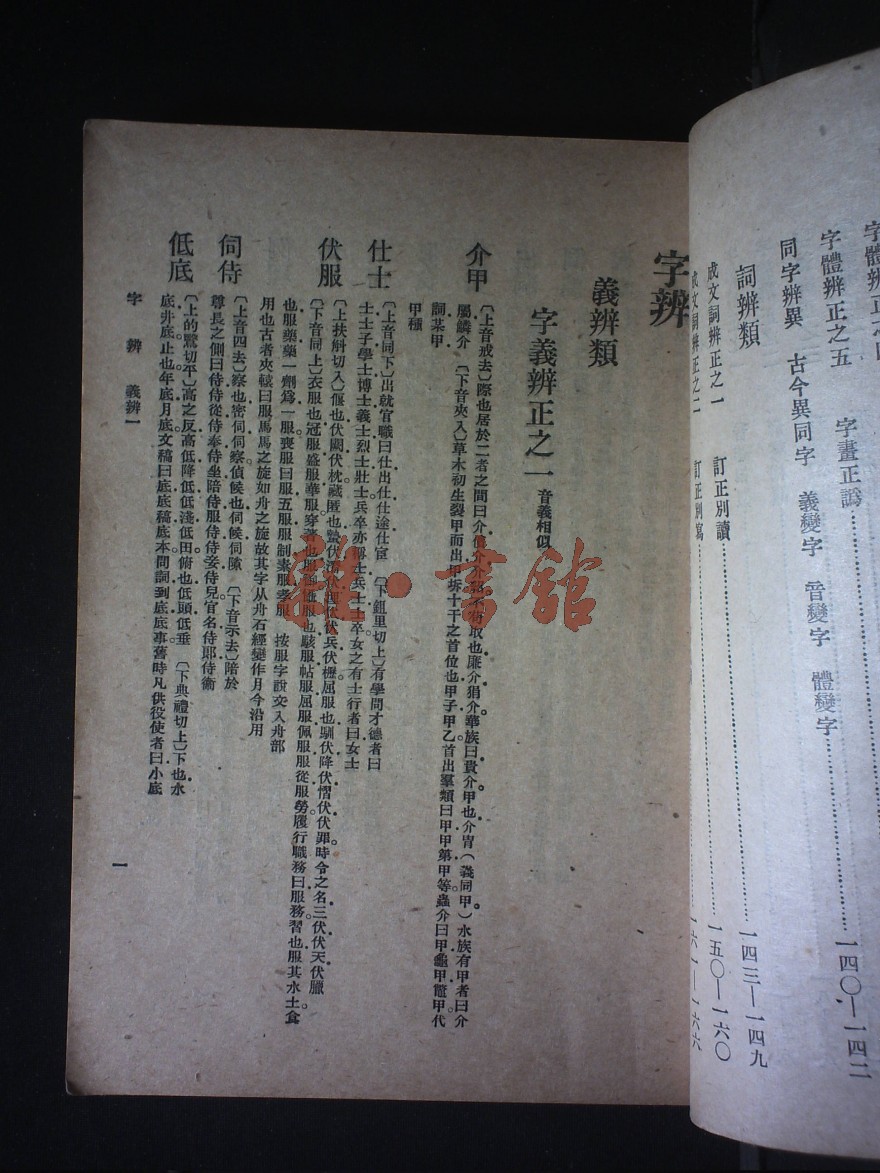 字體辨正之五 字畫正譌……一四〇—一四二
同字辨異 古今異同字 義變字 音變字 體變字
詞辨類……一四三—一四九
成文詞辨正之一 訂正別讀……一五〇—一六〇
成文詞辨正之二 訂正別寫……一六一—一六六
字辨
義辨類
字義辨正之一 音義相似
介甲
〔上音戒去〕際也居於二者之間曰介取也廉介狷介華族曰貴介甲也介冑(義同甲)水族有甲者曰介
屬鱗介 〔下音夾入〕草木初生裂甲而出曰甲坼十干之首位也甲子甲乙首出羣類曰甲甲第甲等蟲介曰甲龜甲鼈甲代
詞某甲
甲種
仕士
〔上音同下〕出就官職曰仕出仕仕途仕宦 〔下鉏里切上〕有學問才德者曰
士士子學士博士義士烈士壯士兵卒亦稱士兵士士卒女之有士行者曰女士
伏服
〔上扶斛切入〕偃也伏闕伏枕藏匿也蟄伏伏兵伏櫪屈服也馴伏降伏慴伏伏罪時令之名三伏伏天伏臘
〔下音同上〕衣服也冠服盛服華服穿著也服也駭服帖服屈服佩服服從服勞履行職務曰服務習也服其水土食
也服藥藥一劑爲一服喪服曰服五服服制素服孝服 按服字說文入舟部
用也古者夾轅曰服馬馬之旋如舟之旋故其字从舟石經變作月今沿用
伺侍
〔上音四去〕察也密伺伺察偵候也伺候伺隙 〔下音示去〕陪於
尊長之側曰侍侍從侍奉侍坐陪侍服侍侍妾侍兒官名侍郎侍衞
低底
〔上的鷖切平〕高之反高低降低低淺低田俯也低頭低垂 〔下典禮切上〕下也水
底井底止也年底月底文稿曰底底稿底本問詞到底底事舊時凡供役使者曰小底
字辨 義辨一
一
雜·書館